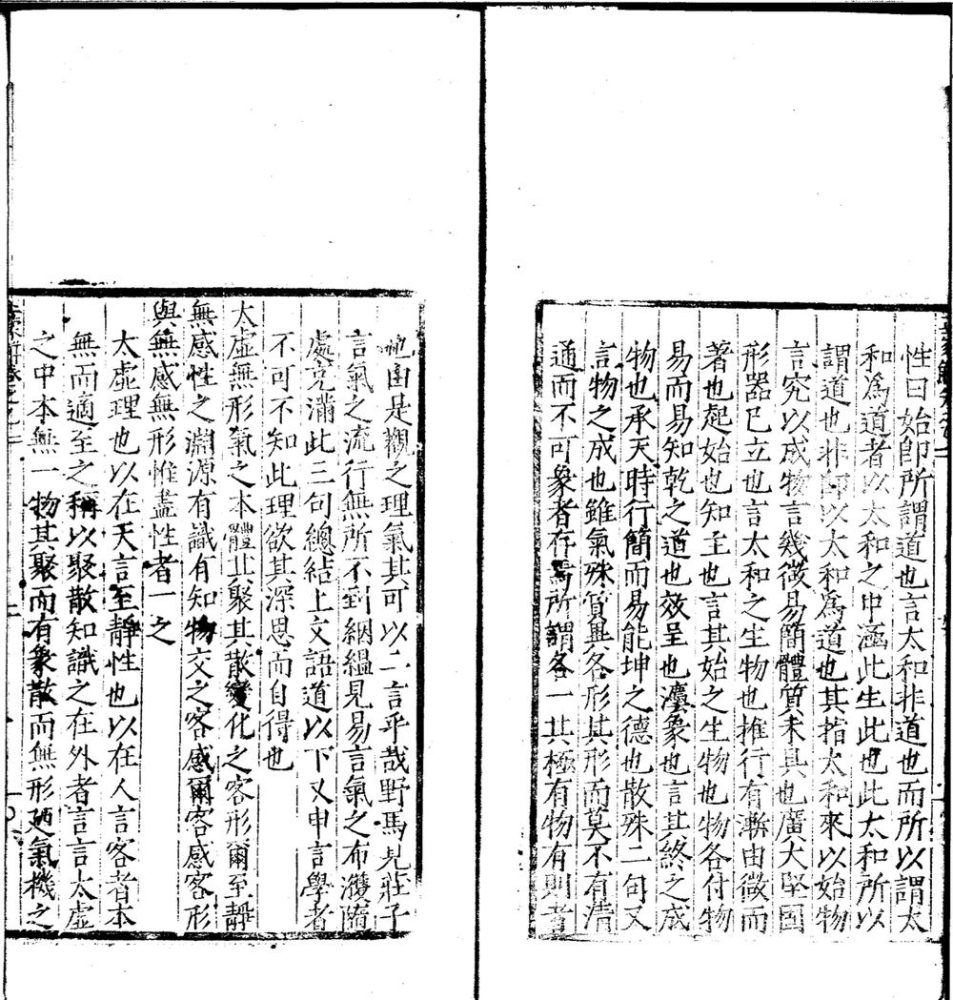 性曰始即所謂道也言太和非道也而所以謂太
和為道者以太和之中涵此生此也此太和所以
謂道也非即以太和為道也其指太和來以始物
言究以成物言幾微易簡體質未具也廣大堅固
形器已立也言太和之生物也推行有漸由微而
著也起始也知主也言其始之生物也物各付物
易而易知乾之道也效呈也灋象也言其終之成
物也承天時行簡而易能坤之德也散殊二句又
言物之成也雖氣殊質異各形其形而莫不有清
通而不可象者存焉所謂各一其極有物有則者
也由是觀之理氣其可以二言乎哉野馬見莊子
言氣之流行無所不到絪緼見易言氣之布濩隨
處充滿此三句總結上文語道以下又申言學者
不可不知此理欲其深思而自得也
太虛無形氣之本體其聚其散變化之客形爾至靜
無感性之淵源有識有知物交之客感爾客感客形
與無感無形惟盡性者一之
太虛理也以在天言至靜性也以在人言客者本
無而適至之稱以聚散知識之在外者言言太虛
之中本無一物其聚而有象散而無形廼氣機之